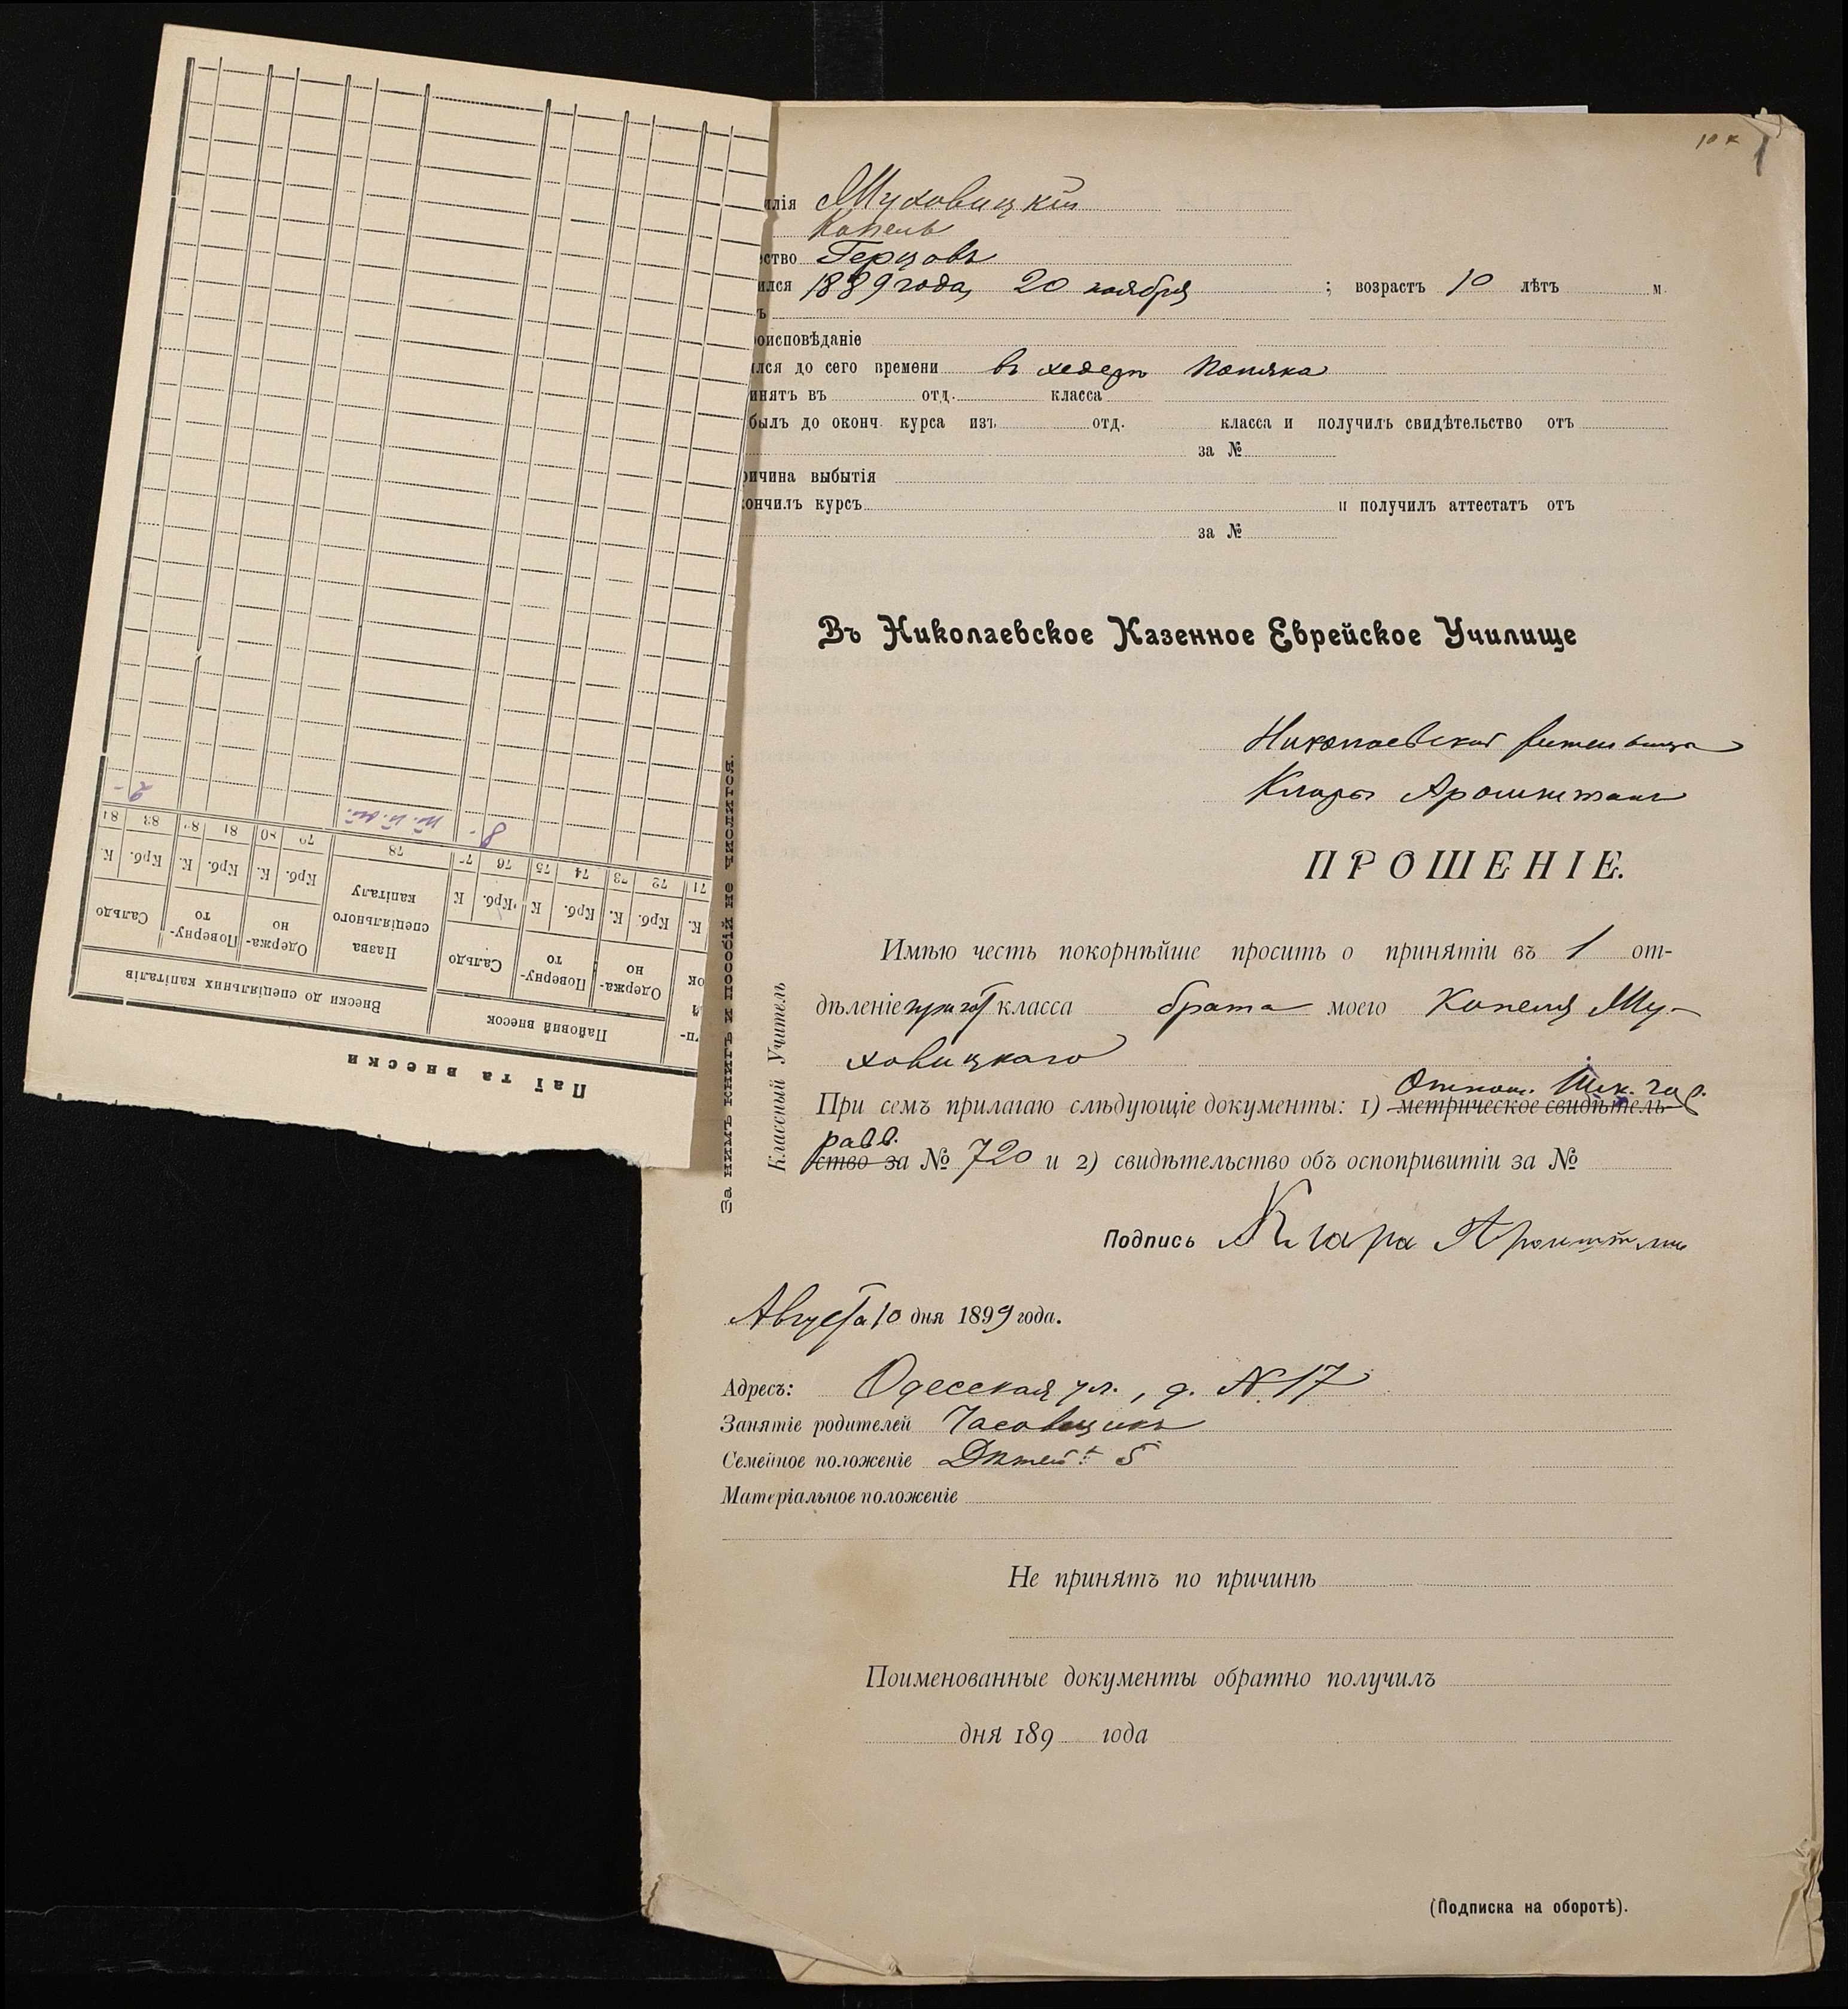 10 к
илія Муховицкій
Копель
ство Герцовъ
ился 1889 года, 20 ноября ; возрастъ 10 лѣтъ м.
ъ
роисповѣданіе
ился до сего времени въ хедерѣ Поляка
инятъ въ отд. класса
былъ до оконч. курса изъ отд. класса и получилъ свидѣтельство отъ
за №
ричина выбытія
кончилъ курсъ и получилъ аттестатъ отъ
за №
Въ Николаевское Казенное Еврейское Училище
Николаевской
Клары
ПРОШЕНІЕ.
Имѣю честь покорнѣйше просить о принятіи въ 1 от-
дѣленіе пригот класса брата моего Копеля Му-
ховицкаго
Отнош. Ник. гор.
При семъ прилагаю слѣдующіе документы: 1) метрическое свидѣтель-
равв.
ство за № 720 и 2) свидѣтельство объ оспопривитіи за №
Подпись Клара
Августа 10 дня 1899 года.
Адресъ: Одесская ул., д. № 17
Занятіе родителей Часовщикъ
Семейное положеніе Дѣтей: 5
Матеріальное положеніе
Не принятъ по причинѣ
Поименованные документы обратно получилъ
дня 189 года
(Подписка на оборотѣ).
Классный Учитель
За нимъ книгъ и пособій не числится.
Паї та внески
Пайовий внесок Внески до спеціяльних капіталів
ок Одержа-но Поверну-то Сальдо Назва спеціяльного капіталу Одержа-но Поверну-то Сальдо
К. Крб. К. Крб. К Крб. К Крб. К. Крб. К. Крб. К.
71 72 73 74 75 76 77 78 79 80 81 82 83 84
8 - 2 -